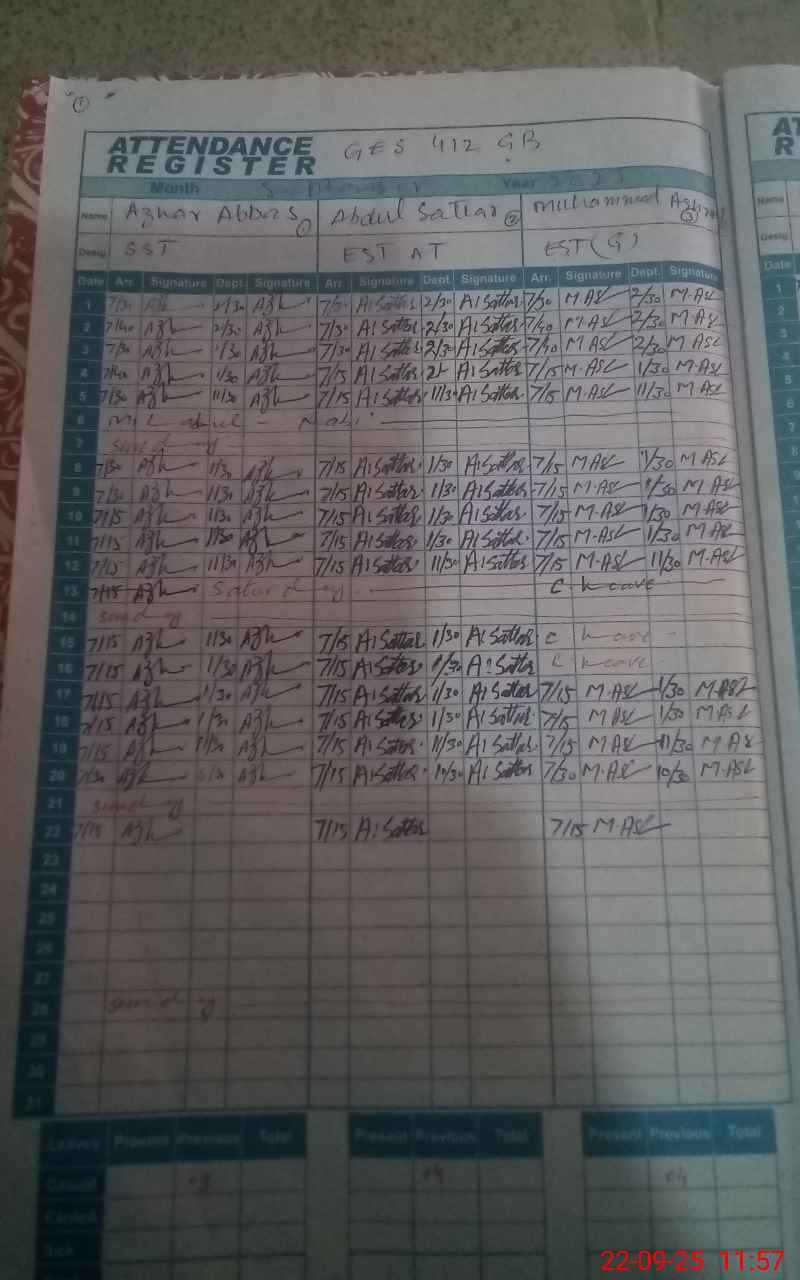 1
ATTENDANCE REGISTER GES 412 GB
Month September Year
Name Azhar Abbas 1 Abdul Sattar 2 Muhammad 3
Desig SST EST AT EST (G)
Date Arr. Signature Dept. Signature Arr. Signature Dept. Signature Arr. Signature Dept. Signature
1 7/30 Azh 2/30 Azh 7/30 A!Sattar 2/30 A!Sattar 7/30 M.ASL 2/30 M.ASL
2 7/40 Azh 2/30 Azh 7/30 A!Sattar 2/30 A!Sattar 7/40 M.ASL 2/30 M.ASL
3 7/30 Azh 1/30 Azh 7/30 A!Sattar 2/30 A!Sattar 7/40 M ASL 2/30 M ASL
4 7/40 Azh 1/30 Azh 7/15 A!Sattar A!Sattar 7/15 M.ASL 1/30 M ASL
5 7/30 Azh 11/30 Azh 7/15 A!Sattar 11/30 A!Sattar 7/15 M.ASL 11/30 M ASL
6 Nabi
7 sunday
8 7/30 Azh 1/30 Azh 7/15 A!Sattar 1/30 A!Sattar 7/15 M ASL 1/30 M ASL
9 7/30 Azh 1/30 Azh 7/15 A!Sattar 1/30 A!Sattar 7/15 M.ASL 1/30 M.ASL
10 7/15 Azh 1/30 Azh 7/15 A!Sattar 1/30 A!Sattar 7/15 M.ASL 1/30 M.ASL
11 7/15 Azh 1/30 Azh 7/15 A!Sattar 1/30 A!Sattar 7/15 M.ASL 1/30 M.ASL
12 7/15 Azh 11/30 Azh 7/15 A!Sattar 11/30 A!Sattar 7/15 M.ASL 11/30 M.ASL
13 7/15 Azh Saturday C Leave
14 sunday
15 7/15 Azh 1/30 Azh 7/15 A!Sattar 1/30 A!Sattar C Leave
16 7/15 Azh 1/30 Azh 7/15 A!Sattar 1/30 A!Sattar C Leave
17 7/15 Azh 1/30 Azh 7/15 A!Sattar 1/30 A!Sattar 7/15 M.ASL 1/30 M.ASL
18 7/15 Azh 1/30 Azh 7/15 A!Sattar 1/30 A!Sattar 7/15 M ASL 1/30 M ASL
19 7/15 Azh 11/30 Azh 7/15 A!Sattar 11/30 A!Sattar 7/15 M.ASL 11/30 M ASL
20 7/30 Azh Azh 7/15 A!Sattar 10/30 A!Sattar 7/30 M.ASL 10/30 M.ASL
21 sunday
22 7/15 Azh 7/15 A!Sattar 7/15 M.ASL
23
24
25
26
27
28 sunday
29
30
31
Leaves Present Previous Total Present Previous Total Present Previous Total
Casual 04 04
Earned
Sick
Name
Desig
Date
22-09-25 11:57